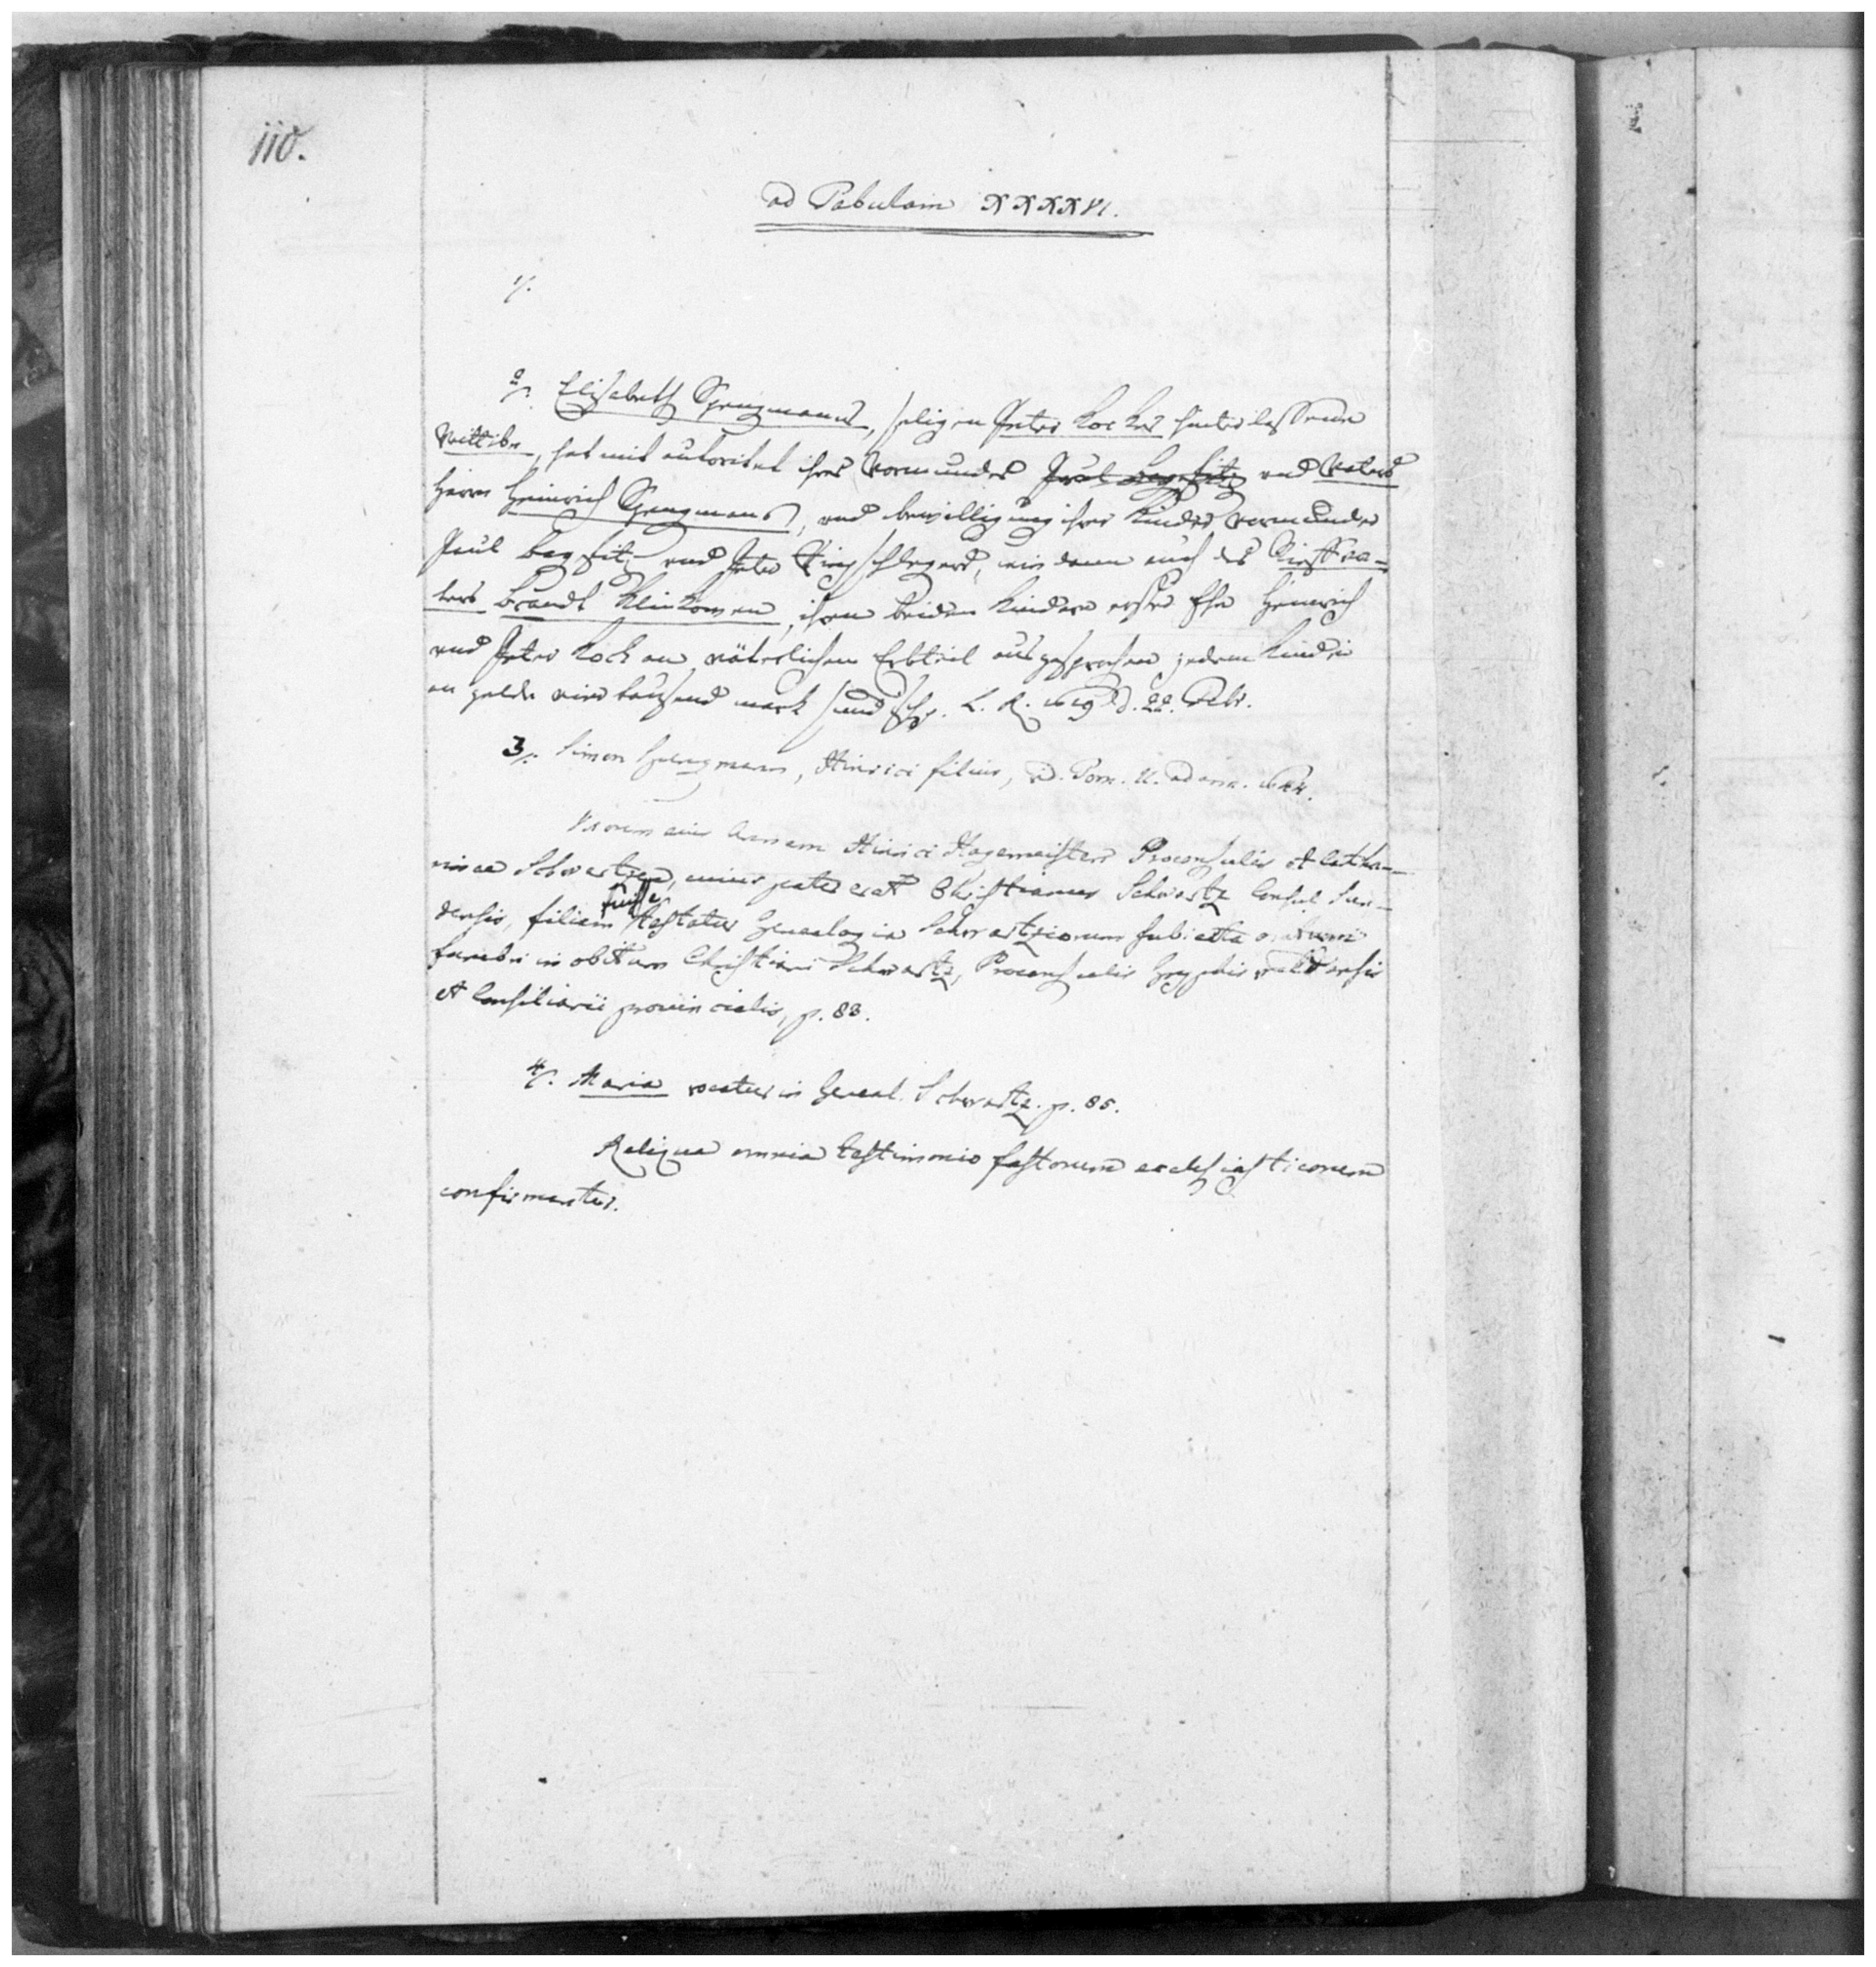 110.
ad Tabulam XXXXVI.
1/.
2/. Elisabeth Spengmanns, seligen Peter Kockes hinterlassene
Wittibe, hat mit autoritet ihres Vormundes Paul und Vaters
Herrn Heinrich Spengmans, und bewilligung ihrer Kinder Vormunder
Paul und Peter wie dann auch des Stieffva-
ters Brandt Klinkowen, ihren beiden Kindern erster Ehe Heinrich
und Peter Kock an väterlichem Erbteil ausgesprochen jedem Kinde
an gelde vier tausend mark sundisch. L. R. 1619 d. 22. Febr.
3/. Simon Spengmann, Hinrici filius, Tom. II. ad ann.
Vxorem eius Annam Hinrici Hagemeisters Proconsulis et Catha-
rinae Schwartzen, cuius pater erat Christianus Schwartz Consul Sun-
densis, filiam fuisse testatur Genealogia Schwartziorum subiecta orationi
funebri in obitum Christiani Schwartz, Proconsulis Gryphiswaldensis
et Consiliarii provincialis, p. 83.
4/. Maria vocatur in Geneal. Schwartz. p. 85.
Reliqua omnia testimonio fastorum ecclesiasticorum
confirmantur.